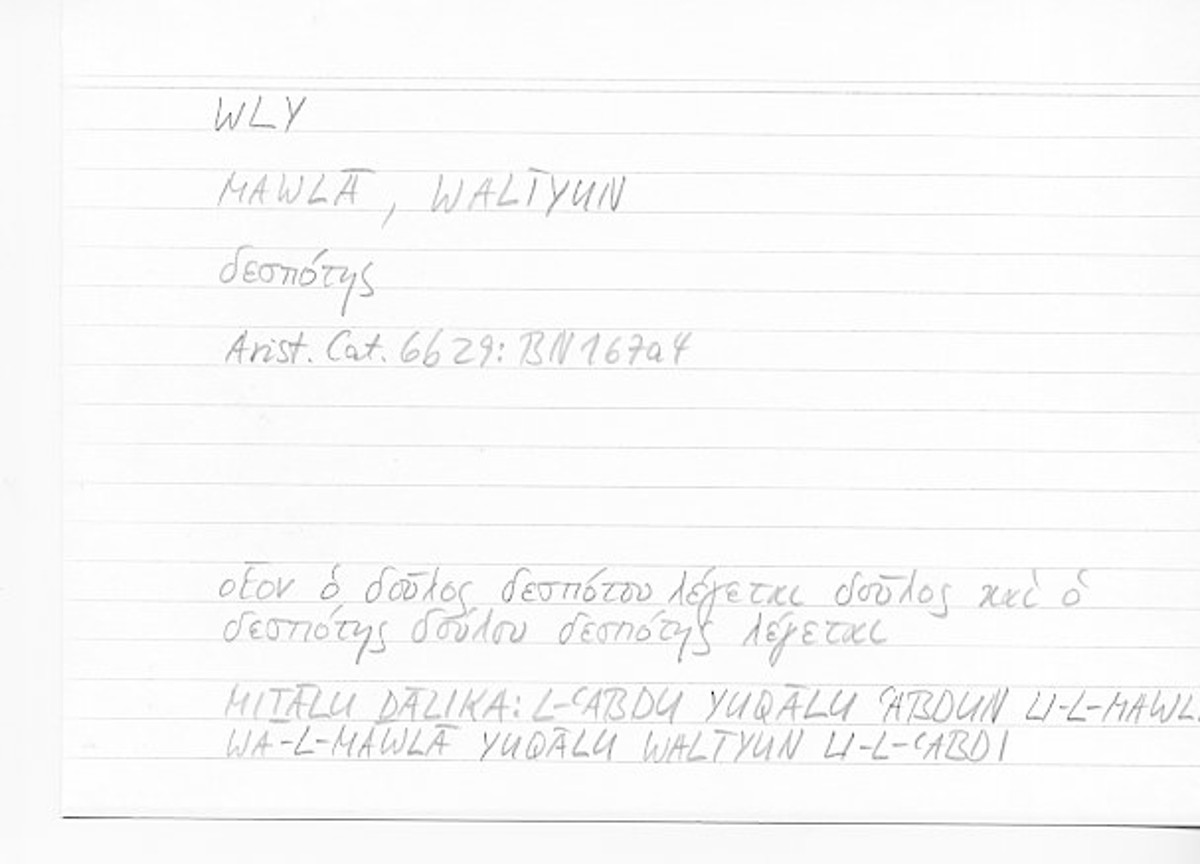 WLY
MAWLĀ, WALĪYUN
δεσπότης
Arist. Cat. 6b29: BN167a4
οἷον ὁ δοῦλος δεσπότου λέγεται δοῦλος καὶ ὁ
δεσπότης δούλου δεσπότης λέγεται
MIṮĀLU ḎĀLIKA: L-ʿABDU YUQĀLU ʿABDUN LI-L-MAWL
WA-L-MAWLĀ YUQĀLU WALĪYUN LI-L-ʿABDI